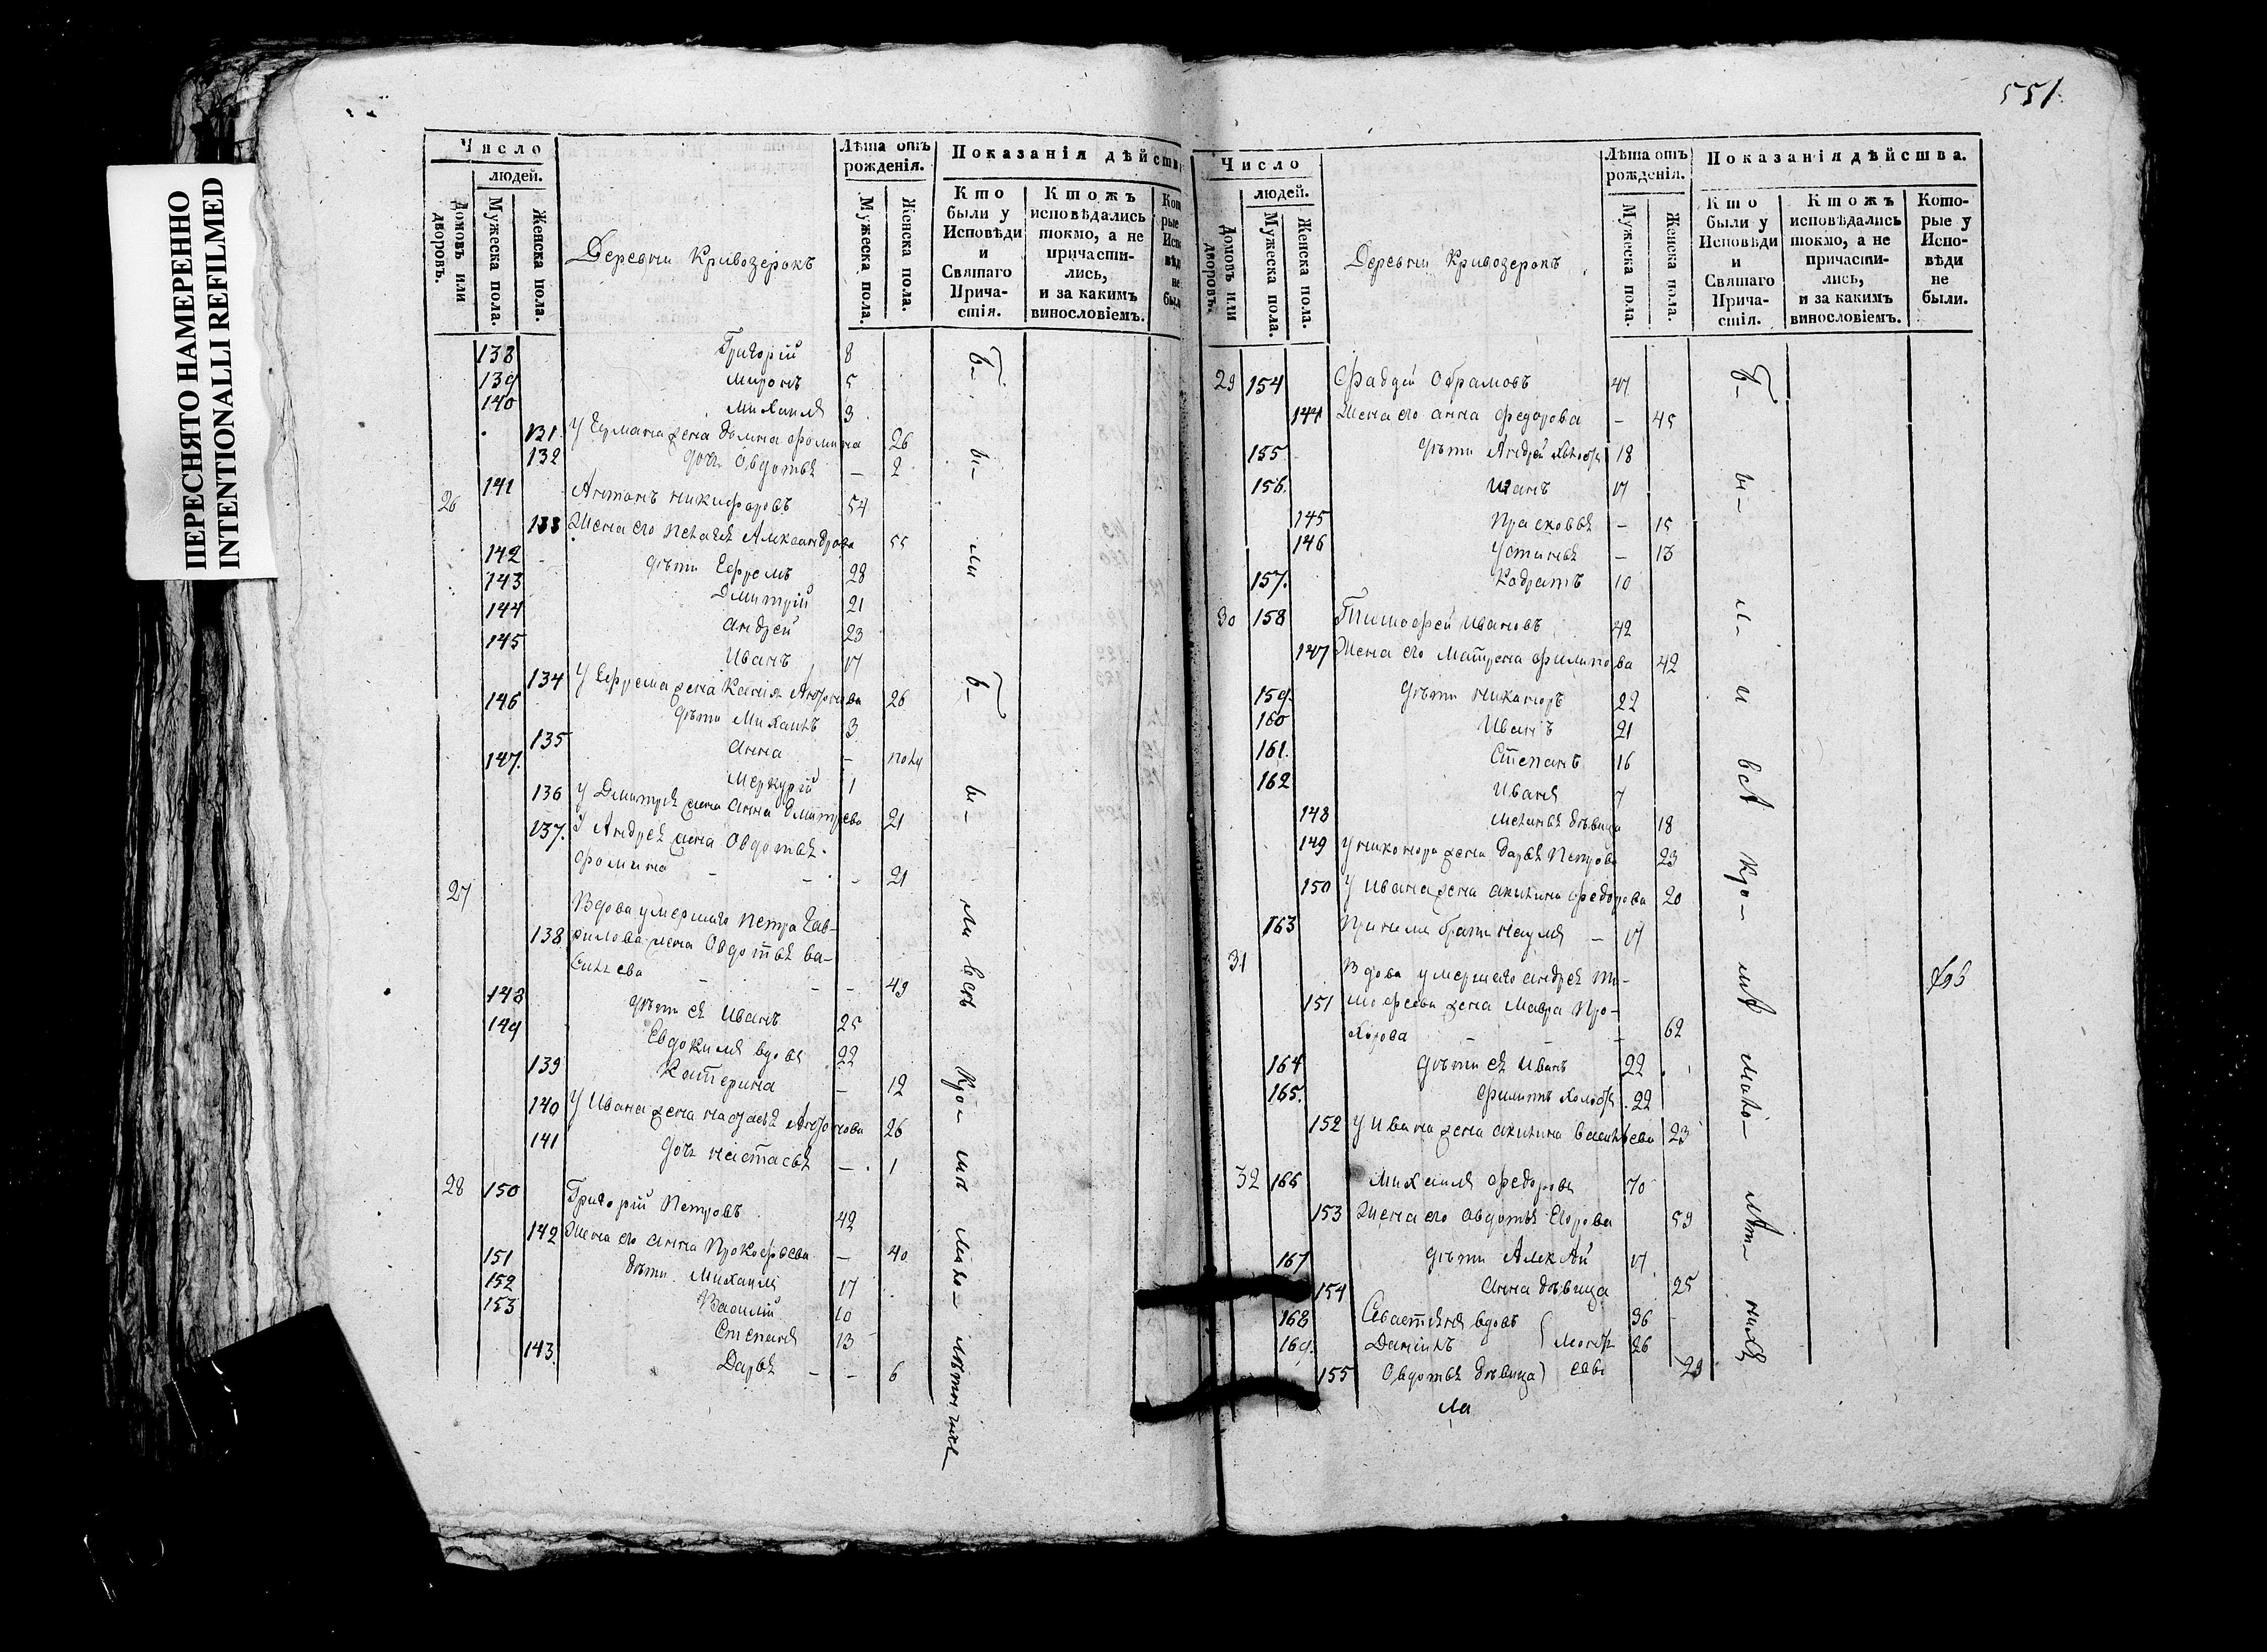 ПЕРЕСНЯТО НАМЕРЕННО
INTENTIONALLI REFILMED
551
Число
людей.
Домовъ или дворовъ.
Мужеска пола.
Женска пола.
Деревни Кривозерокъ
Лѣта отъ рождения.
Мужеска пола.
Женска пола.
Показанія дѣйств
Кто были у Исповѣди и Святаго Причастія.
Ктожъ исповѣдались токмо, а не причастились, и за какимъ винословіемъ.
138 Григорій 8
139 Миронъ 5
140 Михаилъ 3
131 У Ермана жена Домна Фомина 26
132 дочь Овдотья – 2
26 141 Антонъ Никифоровъ 54
133 Жена его Пелагея Александрова 55
142 дѣти Ефремъ 28
143 Дмитрій 21
144 Андрей 23
145 Иванъ 17
134 У Ефрема жена 26
146 дѣти 3
135 Анна – полу
147 Меркурій 1
136 У Дмитрея жена Анна Дмитрева 21
137 У Андрея жена Овдотья
Фомина – – – 21
27 Вдова умершаго Петра Гав-
138 рилова жена Овдотья Ва-
сильева – – – 49
148 дѣти ея Иванъ 25
149 Евдокимъ вдовъ 22
139 Катерина – 12
140 У Ивана жена 26
141 дочь Настасья – 1
28 150 Григорій Петровъ 42
142 Жена его Анна Прокофьева – 40
151 дѣти Михаилъ 17
152 Василій 10
153 Степанъ 13
143 Дарья – – 6
бы-
ли
бы-
ли всѣ кро-
мѣ мало-
лѣтнихъ
Число
людей.
Домовъ или дворовъ.
Мужеска пола.
Женска пола.
Деревни Кривозерокъ
Лѣта отъ рожденія.
Мужеска пола.
Женска пола.
Показанія дѣйства.
Кто были у Исповѣди и Святаго Причастія.
Ктожъ исповѣдались токмо, а не причастились, и за какимъ винословіемъ.
Которые у Исповѣди не были.
29 154 Фадѣй Обрамовъ 47
144 Жена его Анна Федорова – 45
155 дѣти Андрей 18
156 Иванъ 17
145 Прасковья – 15
146 Устинья – 13
157 Кодратъ 10
30 158 Тимофей Ивановъ 42
147 Жена его Матрена Филипова 42
159 дѣти Никаноръ 22
160 Иванъ 21
161 Степанъ 16
162 Иванъ 7
148 Меланья дѣвица 18
149 У Никонора жена Дарья Петрова 23
150 У Ивана жена Акилина Федорова 20
163 Наумъ – 17
31 Вдова умершаго Андрея Ти-
151 мофеева жена Мавра Про-
хорова – – 62
164 дѣти ея Иванъ 22
165 Филиппъ 22
152 У Ивана жена Акилина Васильева 23
32 166 Михаилъ Федоровъ 70
153 Жена его Овдотья Егорова 59
167 дѣти Алексѣй 17
154 Анна дѣвица 25
168 Савастьянъ вдовъ 36
169 Данилъ 26
155 Овдотья дѣвица 29
ла
бы-
ли
всѣ
кро-
мѣ
мало-
лѣт-
нихъ